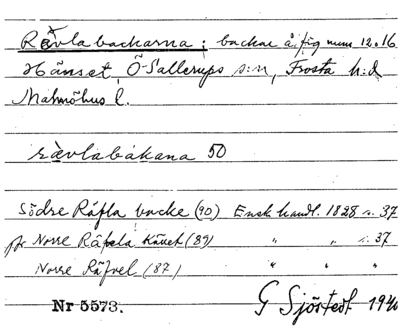 Rävlabackarna: backar å fig num 12.16
Hänset, Ö Sallerups s:n, Frosta h:d
Malmöhus l.
rävlabakana 50
Södre Räfla backe (90) Ensk handl. 1828 s. 37
Norre Räfvla (89) " " s. 37
Norre Räfvel (87) " " "
Nr 5573. G Sjöstedt 1940